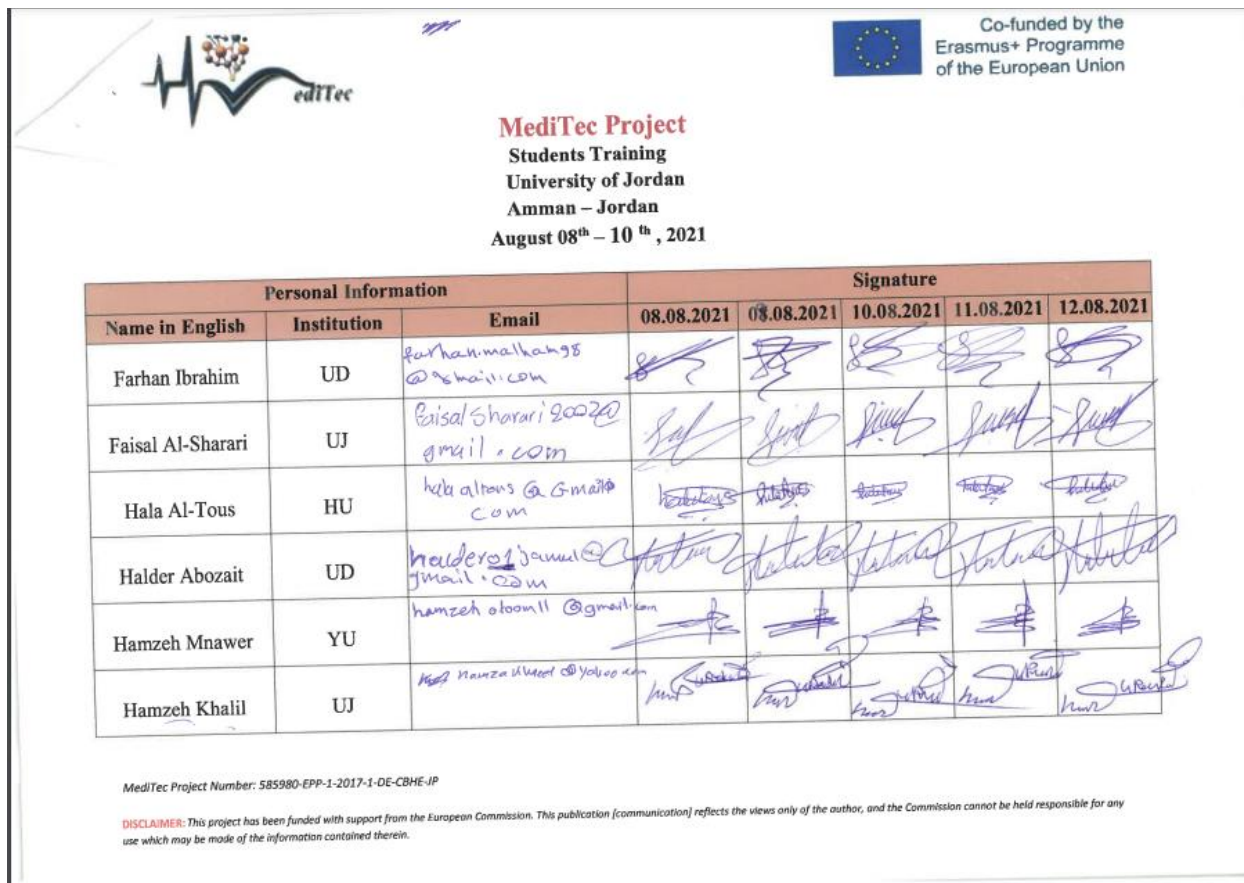 ediTec
Co-funded by the
Erasmus+ Programme
of the European Union
MediTec Project
Students Training
University of Jordan
Amman – Jordan
August 08th – 10 th , 2021
Personal Information Signature
Name in English Institution Email 08.08.2021 08.08.2021 10.08.2021 11.08.2021 12.08.2021
Farhan Ibrahim UD
farhan.malkah98
@gmail.com
Faisal Al-Sharari UJ
faisalsharari2002@
gmail.com
Hala Al-Tous HU
@Gmail.
com
Halder Abozait UD
@
gmail.com
Hamzeh Mnawer YU
hamzeh otoom11 @gmail.com
Hamzeh Khalil UJ
@yahoo.com
MediTec Project Number: 585980-EPP-1-2017-1-DE-CBHE-JP
DISCLAIMER: This project has been funded with support from the European Commission. This publication [communication] reflects the views only of the author, and the Commission cannot be held responsible for any
use which may be made of the information contained therein.